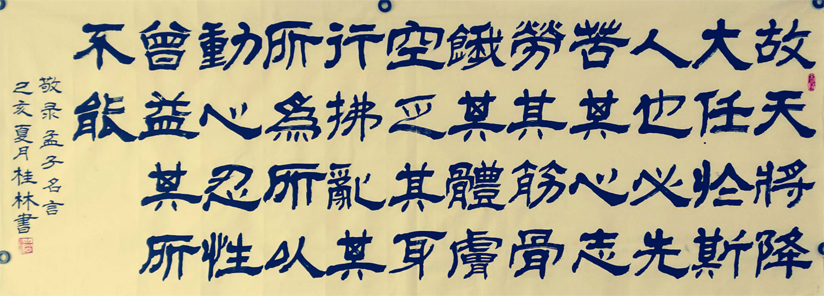 故天將降
大任於斯
人也必先
苦其心志
勞其筋骨
餓其體膚
空乏其耳
行拂亂其
所爲所以
動心忍性
曾益其所
不能
敬录孟子名言
己亥夏月桂林書